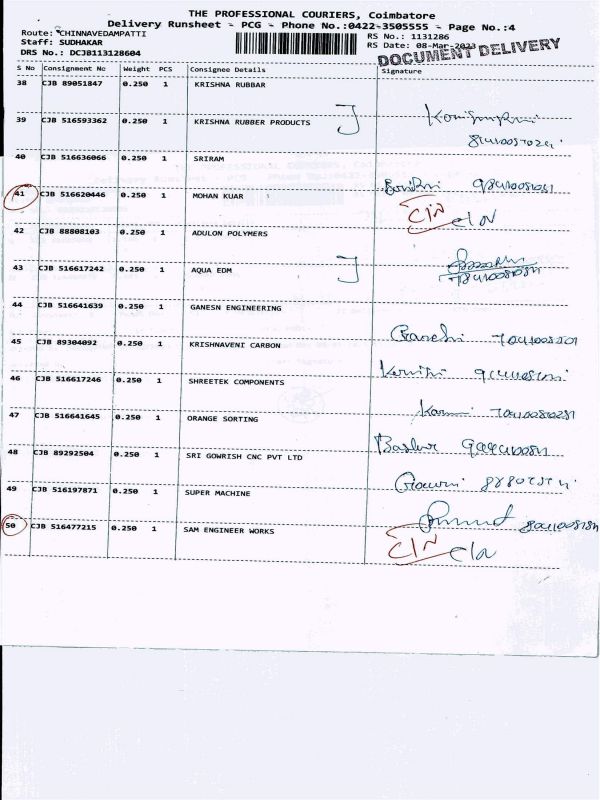 THE PROFESSIONAL COURIERS, Coimbatore
Delivery Runsheet - PCG - Phone No.:0422-3505555 - Page No.:4
Route: CHINNAVEDAMPATTI RS No.: 1131286
Staff: SUDHAKAR RS Date: 08-Mar-2023
DRS No.: DCJB113128604 DOCUMENT DELIVERY
S No Consignment No Weight PCS Consignee Details Signature
38 CJB 89051847 0.250 1 KRISHNA RUBBAR
39 CJB 516593362 0.250 1 KRISHNA RUBBER PRODUCTS
40 CJB 516636066 0.250 1 SRIRAM
41 CJB 516620446 0.250 1 MOHAN KUAR C/N C/N
42 CJB 88808103 0.250 1 ADULON POLYMERS
43 CJB 516617242 0.250 1 AQUA EDM
44 CJB 516641639 0.250 1 GANESN ENGINEERING
45 CJB 89304092 0.250 1 KRISHNAVENI CARBON
46 CJB 516617246 0.250 1 SHREETEK COMPONENTS
47 CJB 516641645 0.250 1 ORANGE SORTING
48 CJB 89292504 0.250 1 SRI GOWRISH CNC PVT LTD
49 CJB 516197871 0.250 1 SUPER MACHINE
50 CJB 516477215 0.250 1 SAM ENGINEER WORKS C/N C/N